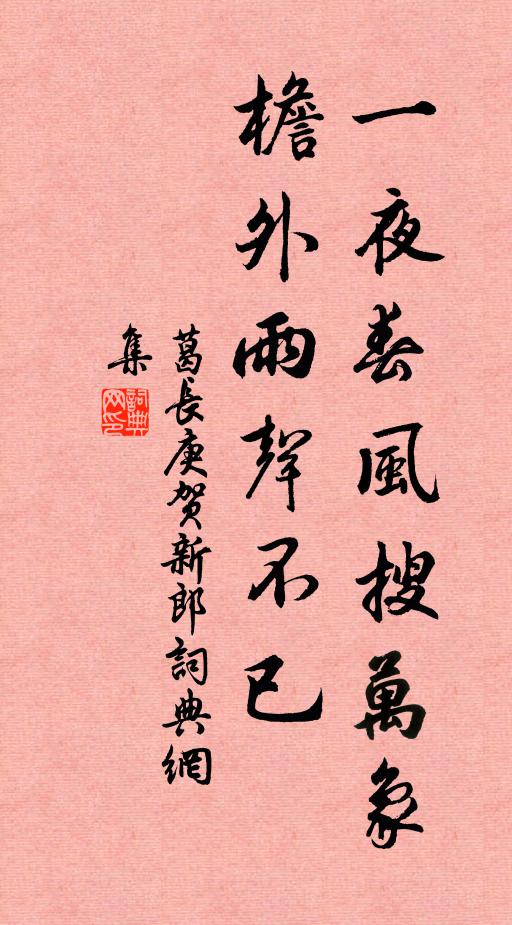 一夜春風搜萬象
檐外雨聲不已
葛長庚賀新郎詞典網
集
詞典网印